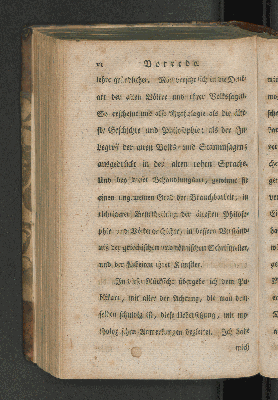 VI Vorrede.
lehre gründlicher. Man versetze sich in die Denk-
art der alten Völker und ihrer Volkssagen.
So erscheint uns alle Mythologie als die älte-
ste Geschichte und Philosophie; als der In-
begriff der alten Volks- und Stammsagen,
ausgedrückt in der alten rohen Sprache.
Und aus dieser Behandlungsart, gewinnt sie
einen ungemeinen Grad der Brauchbarkeit, in
richtigerer Beurtheilung der ältesten Philoso-
phie und Völkergeschichte, in besserm Verständ-
nis der griechischen und römischen Schriftsteller,
und der Arbeiten ihrer Künstler.
In dieser Rücksicht übergebe ich dem Pu-
blikum, mit aller der Achtung, die man dem-
selben schuldig ist, diese Uebersetzung, mit my-
thologischen Anmerkungen begleitet. Ich habe
mich